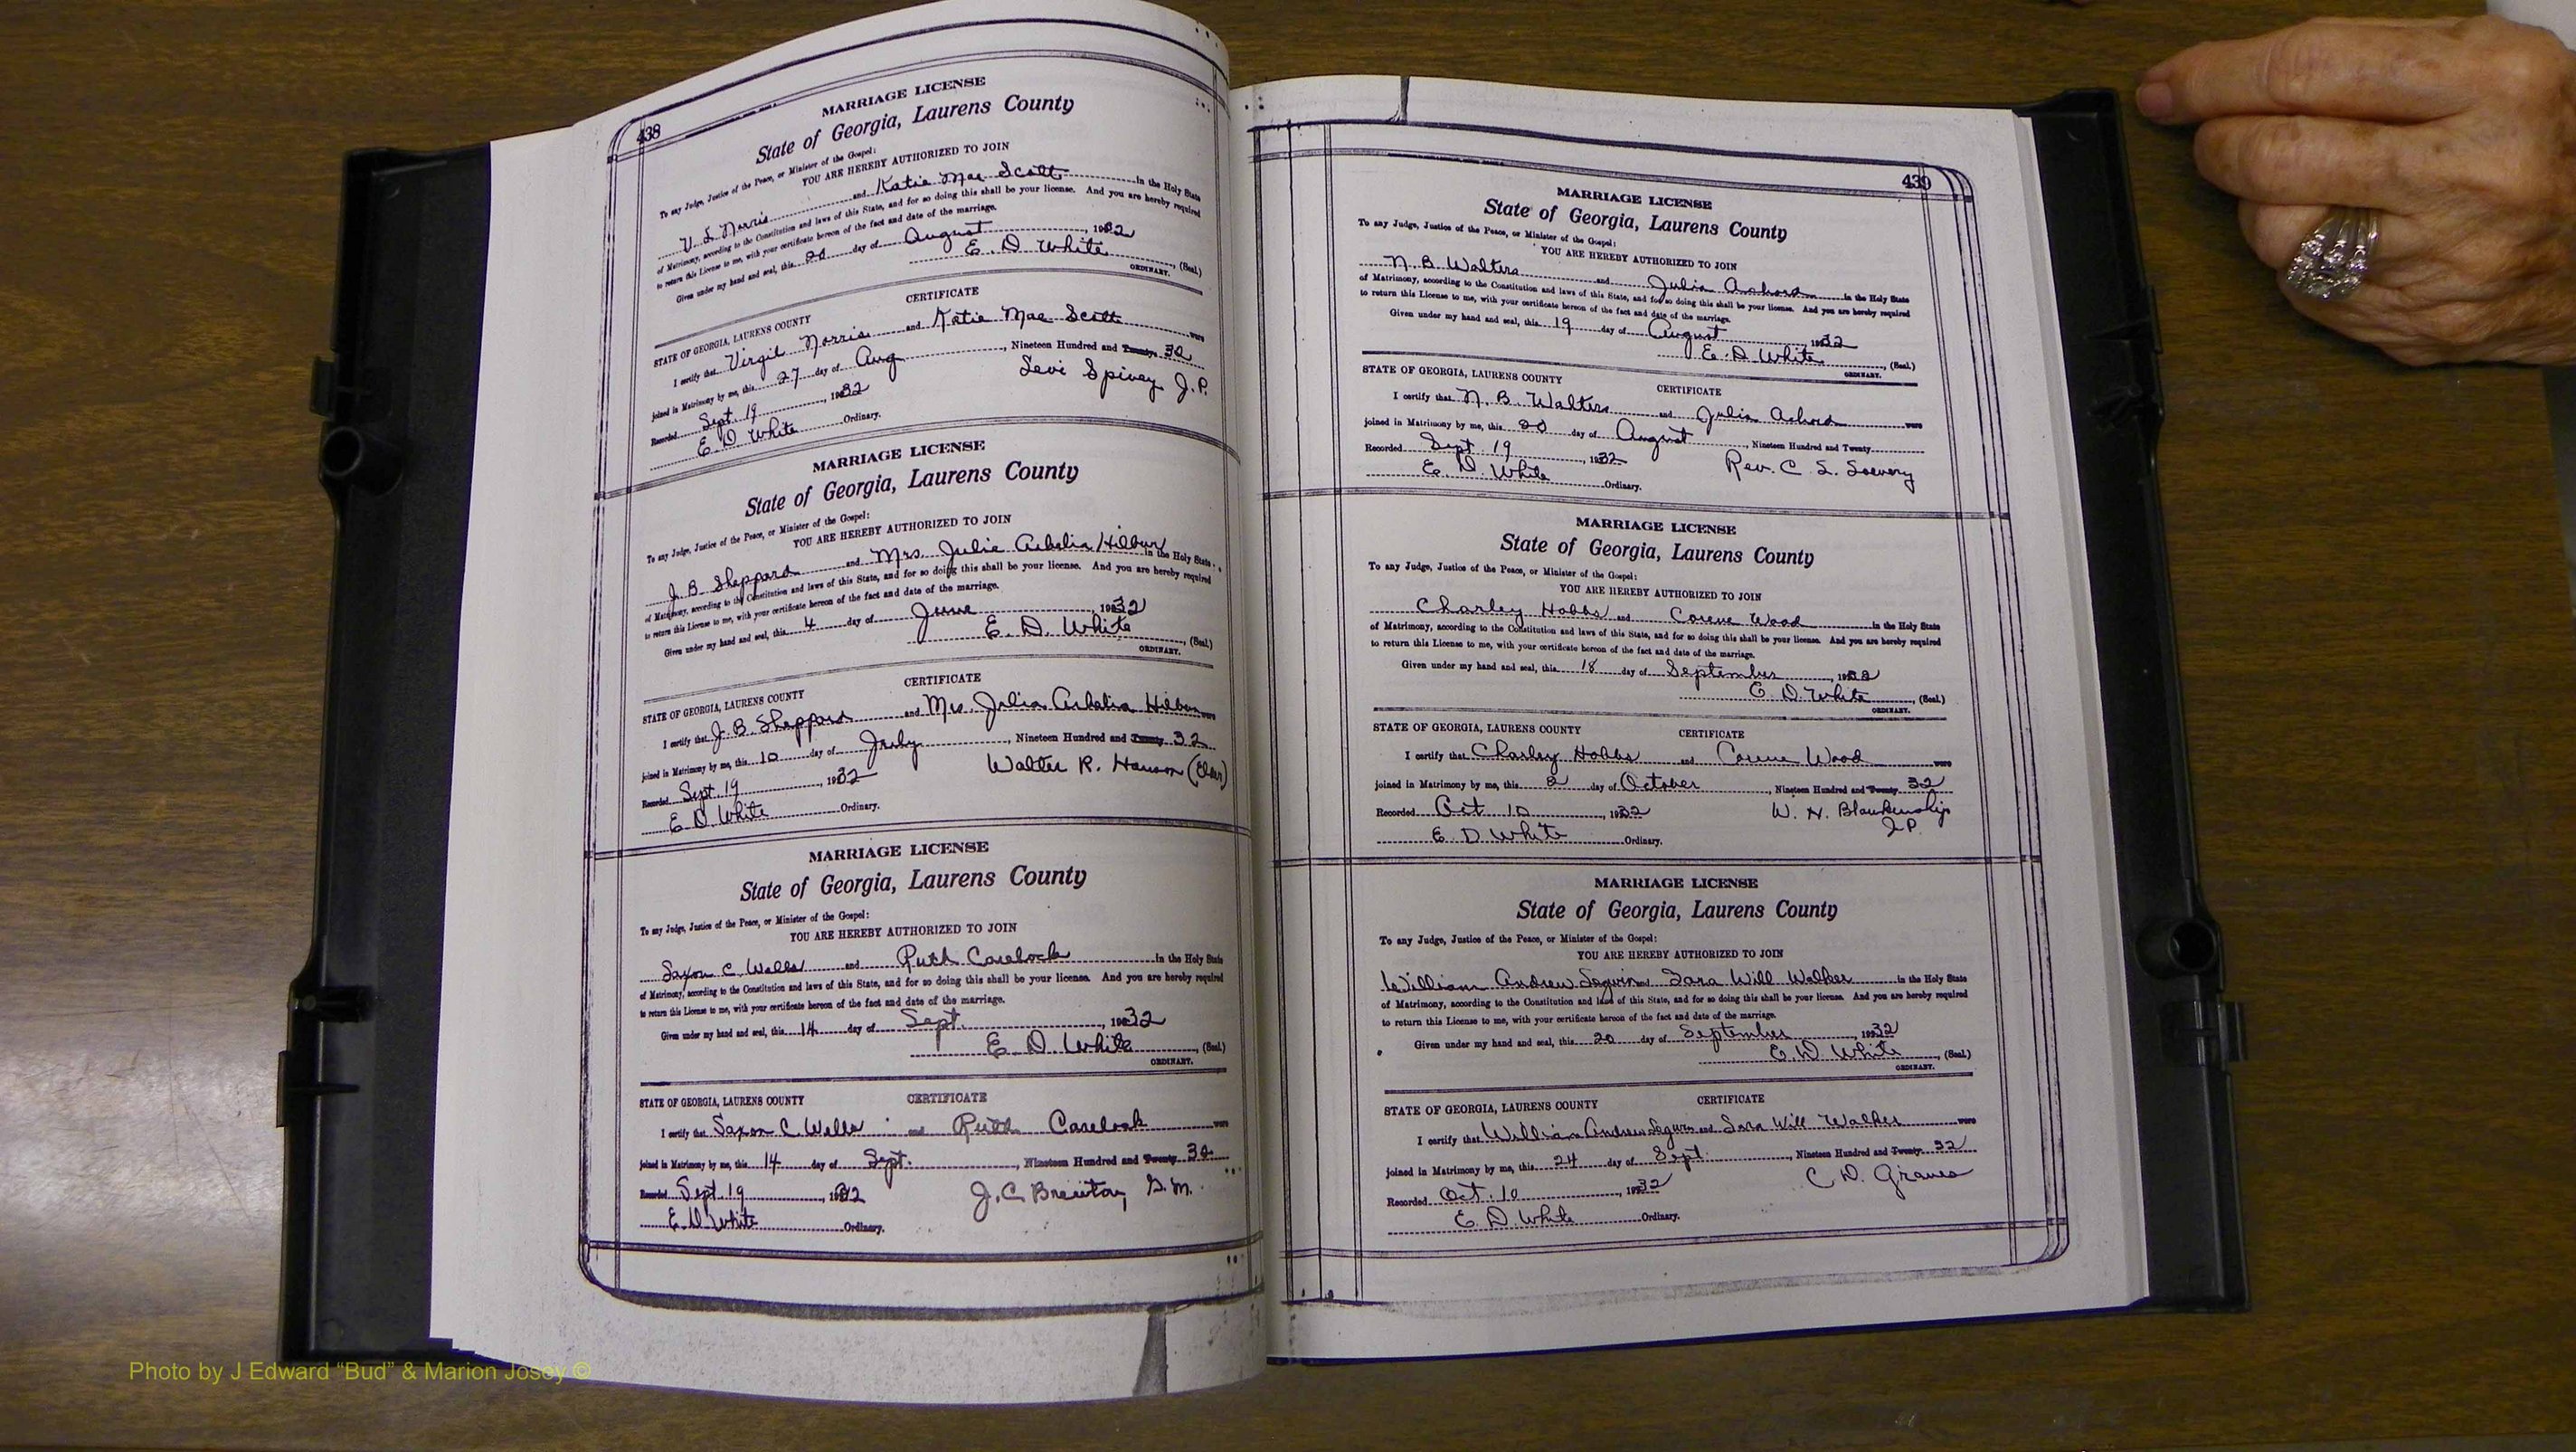 438
MARRIAGE LICENSE
State of Georgia, Laurens County
To any Judge, Justice of the Peace, or Minister of the Gospel:
YOU ARE HEREBY AUTHORIZED TO JOIN
V. L. Norris and Katie Mae Scott in the Holy State
of Matrimony, according to the Constitution and laws of this State, and for so doing this shall be your license. And you are hereby required
to return this License to me, with your certificate hereon of the fact and date of the marriage.
Given under my hand and seal, this 20 day of August, 1932
E. D. White, (Seal.)
ORDINARY.
CERTIFICATE
STATE OF GEORGIA, LAURENS COUNTY
I certify that Virgil Norris and Katie Mae Scott were
joined in Matrimony by me, this 27 day of Aug, Nineteen Hundred and Twenty 32
Recorded Sept. 19, 1932 Levi Spivey J.P.
E. D. White Ordinary.
MARRIAGE LICENSE
State of Georgia, Laurens County
To any Judge, Justice of the Peace, or Minister of the Gospel:
YOU ARE HEREBY AUTHORIZED TO JOIN
J. B. Sheppard and Mrs. Julia Hilbun in the Holy State
of Matrimony, according to the Constitution and laws of this State, and for so doing this shall be your license. And you are hereby required
to return this License to me, with your certificate hereon of the fact and date of the marriage.
Given under my hand and seal, this 4 day of June, 1932
E. D. White, (Seal.)
ORDINARY.
CERTIFICATE
STATE OF GEORGIA, LAURENS COUNTY
I certify that J. B. Sheppard and Mrs. Julia Hilbun were
joined in Matrimony by me, this 10 day of July, Nineteen Hundred and Twenty 32
Recorded Sept. 19, 1932 Walter R. Hanson
E. D. White Ordinary.
MARRIAGE LICENSE
State of Georgia, Laurens County
To any Judge, Justice of the Peace, or Minister of the Gospel:
YOU ARE HEREBY AUTHORIZED TO JOIN
Saxon C. Wells and Ruth in the Holy State
of Matrimony, according to the Constitution and laws of this State, and for so doing this shall be your license. And you are hereby required
to return this License to me, with your certificate hereon of the fact and date of the marriage.
Given under my hand and seal, this 14 day of Sept., 1932
E. D. White, (Seal.)
ORDINARY.
STATE OF GEORGIA, LAURENS COUNTY CERTIFICATE
I certify that Saxon C. Wells and Ruth were
joined in Matrimony by me, this 14 day of Sept., Nineteen Hundred and Twenty 32
Recorded Sept. 19, 1932 J. C. Brewton,
E. D. White Ordinary.
439
MARRIAGE LICENSE
State of Georgia, Laurens County
To any Judge, Justice of the Peace, or Minister of the Gospel:
YOU ARE HEREBY AUTHORIZED TO JOIN
N. B. Walters and Julia Achord in the Holy State
of Matrimony, according to the Constitution and laws of this State, and for so doing this shall be your license. And you are hereby required
to return this License to me, with your certificate hereon of the fact and date of the marriage.
Given under my hand and seal, this 19 day of August, 1932
E. D. White, (Seal.)
ORDINARY.
STATE OF GEORGIA, LAURENS COUNTY CERTIFICATE
I certify that N. B. Walters and Julia Achord were
joined in Matrimony by me, this 20 day of August, Nineteen Hundred and Twenty
Recorded Sept 19, 1932 Rev. C. L.
E. D. White Ordinary.
MARRIAGE LICENSE
State of Georgia, Laurens County
To any Judge, Justice of the Peace, or Minister of the Gospel:
YOU ARE HEREBY AUTHORIZED TO JOIN
Charley Hobbs and Corene Wood in the Holy State
of Matrimony, according to the Constitution and laws of this State, and for so doing this shall be your license. And you are hereby required
to return this License to me, with your certificate hereon of the fact and date of the marriage.
Given under my hand and seal, this 18 day of September, 1932
E. D. White, (Seal.)
ORDINARY.
STATE OF GEORGIA, LAURENS COUNTY CERTIFICATE
I certify that Charley Hobbs and Corene Wood were
joined in Matrimony by me, this 2 day of October, Nineteen Hundred and Twenty 32
Recorded Oct 10, 1932 W. H. Blankenship
J.P.
E. D. White Ordinary.
MARRIAGE LICENSE
State of Georgia, Laurens County
To any Judge, Justice of the Peace, or Minister of the Gospel:
YOU ARE HEREBY AUTHORIZED TO JOIN
William Andrew Sara Will Walker in the Holy State
of Matrimony, according to the Constitution and laws of this State, and for so doing this shall be your license. And you are hereby required
to return this License to me, with your certificate hereon of the fact and date of the marriage.
Given under my hand and seal, this 20 day of September, 1932
E. D. White, (Seal.)
ORDINARY.
STATE OF GEORGIA, LAURENS COUNTY CERTIFICATE
I certify that William Andrew and Sara Will Walker were
joined in Matrimony by me, this 24 day of Sept., Nineteen Hundred and Twenty 32
Recorded Oct. 10, 1932 C. D. Graves
E. D. White Ordinary.
Photo by J Edward “Bud” & Marion Josey ©